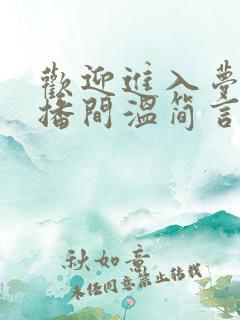 歡迎進入夢
播間溫簡言
秋如意
未经同意禁止转载